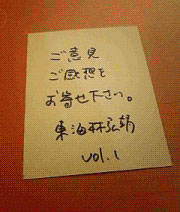 ご意見
ご感想を
お寄せ下さい。
東海林弘靖
vol.1